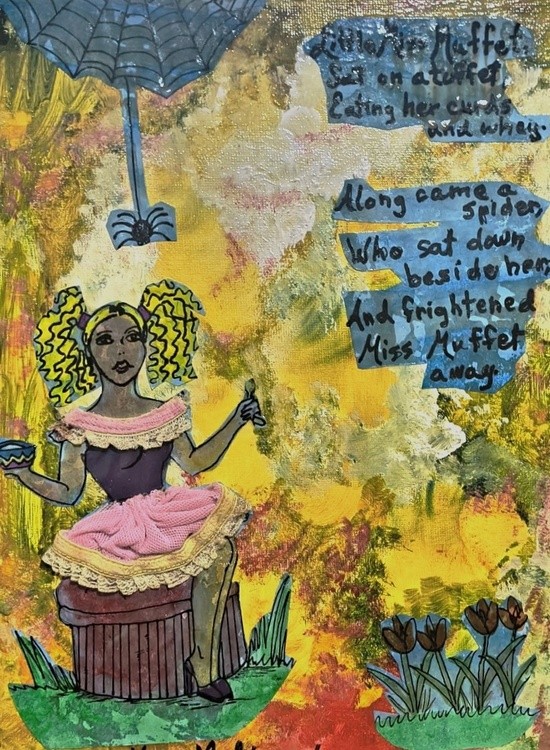 Little Miss Muffet,
Sat on a tuffet,
Eating her curds
and whey.
Along came a
spider
Who sat down
beside her
And frightened
Miss Muffet
away.